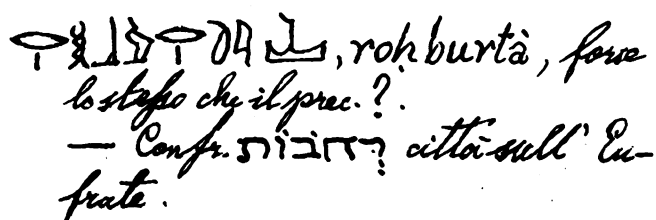 , roḥburtà, forse
lo stesso che il prec.?.
— Confr. רְחֹבוֹת città sull' Eu-
frate.